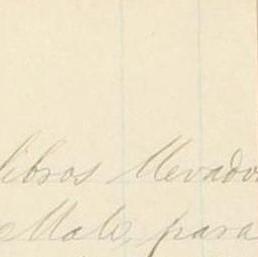 libros llevado
Malo, para